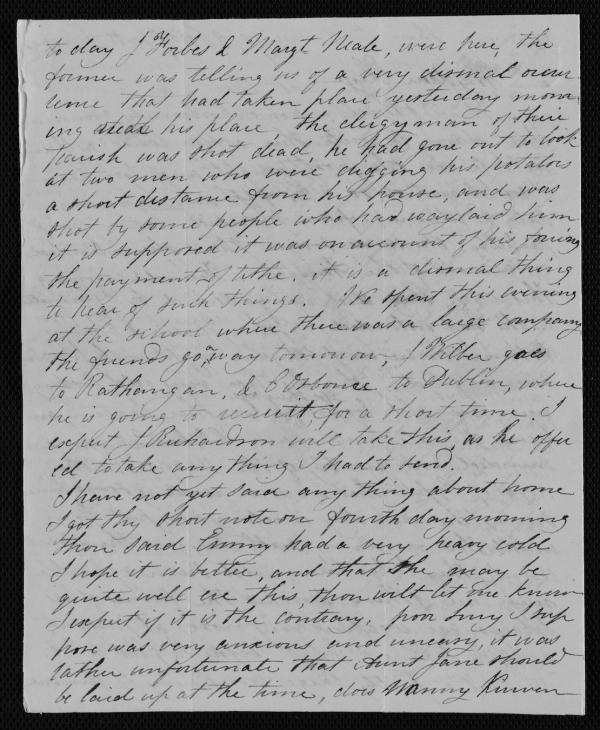 to day J Forbes & Margt Neale, were here, the
former was telling us of a very dismal occur
rence that had taken place yesterday morn
ing near his place, the clergyman of their
Parish was shot dead, he had gone out to look
at two men who were digging his potatoes
a short distance from his house, and was
shot by some people who had waylaid him
it is supposed it was on account of his forcing
the payment of tithe. it is a dismal thing
to hear of such things. We spent this evening
at the school where there was a large company
the friends go away tomorrow, J Wilber goes
to Rathangan, & C Osborne to Dublin, where
he is going to recruit, for a short time. I
expect J Richardson will take this, as he offer
ed to take any thing I had to send.
I have not yet said any thing about home
I got thy short note on fourth day morning
thou said Emmy had a very heavy cold
I hope it is better, and that she may be
quite well ere this, thou wilt let me know
I expect if it is the contrary, poor Lucy I sup
pose was very anxious and uneasy, it was
rather unfortunate that Aunt Jane should
be laid up at the time, does Nanny Kirwen